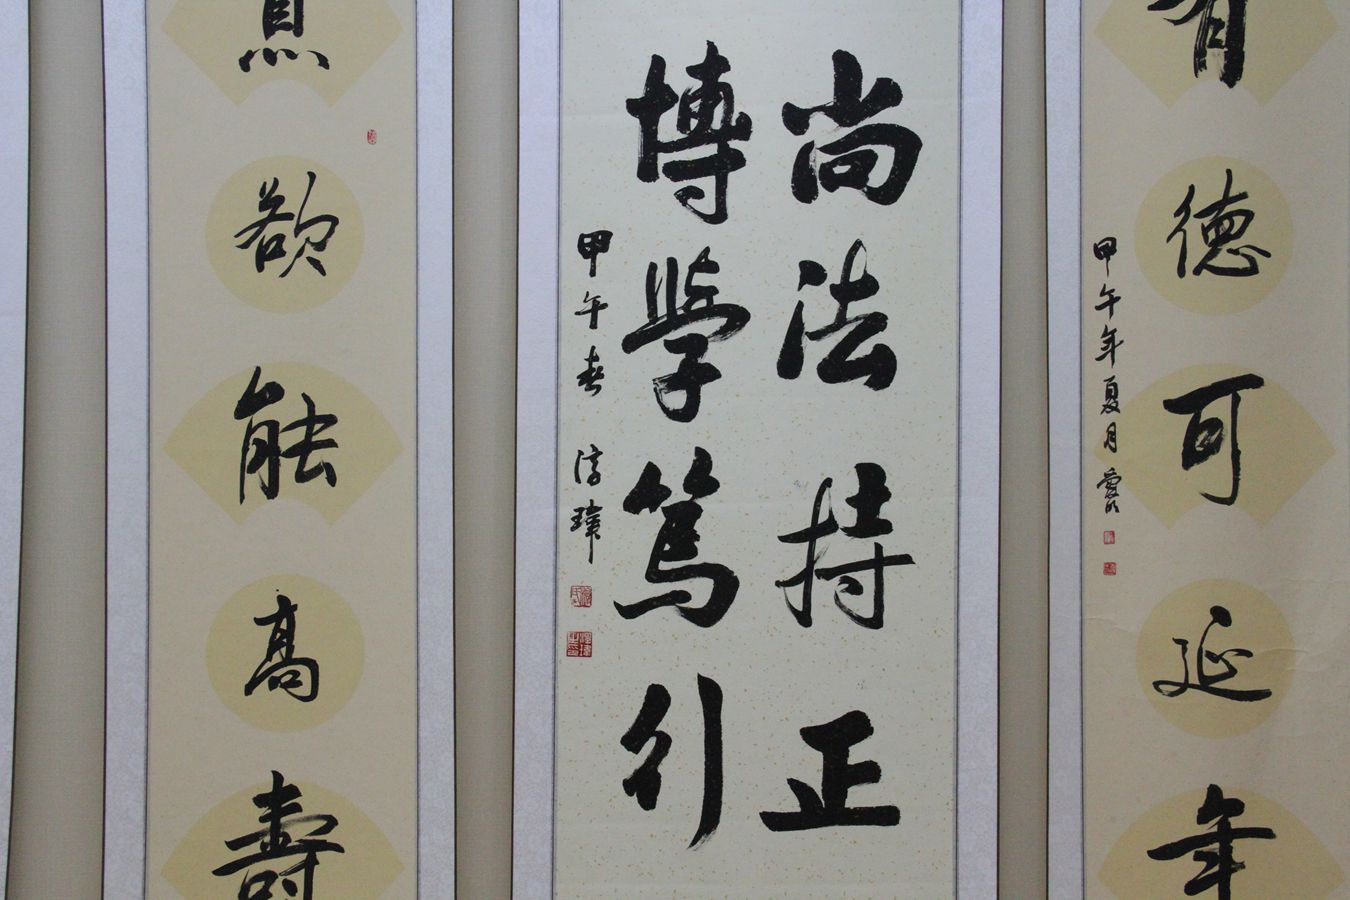 有德可延年
甲午年夏月
尚法持正
博學篤行
甲午春 淳瑋
息欲能高壽